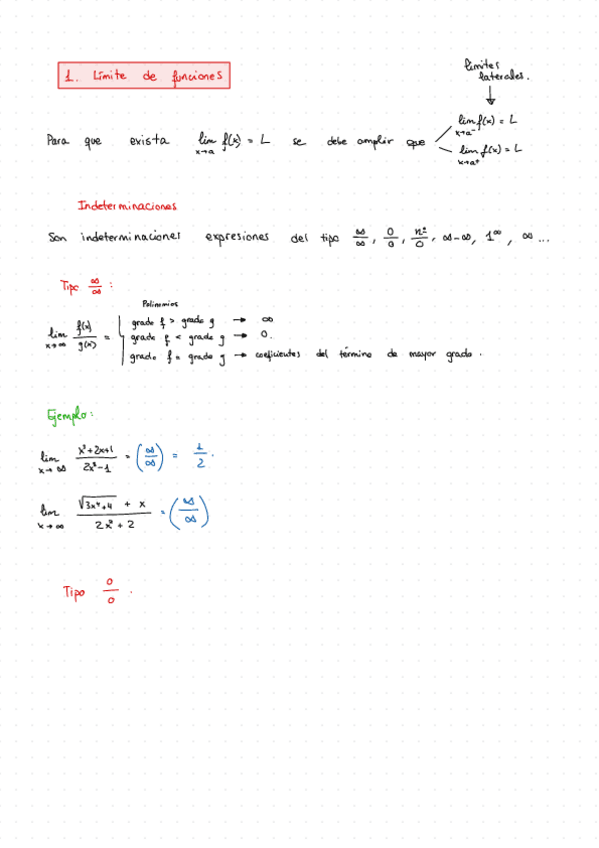 1. Límite de funciones
límites
laterales.
Para que exista lim x→a f(x) = L se debe cumplir que
lim x→a⁻ f(x) = L
lim x→a⁺ f(x) = L
Indeterminaciones
Son indeterminaciones expresiones del tipo ∞/∞, 0/0, nº/0, ∞-∞, 1^∞, ∞ ...
Tipo ∞/∞ :
Polinomios
lim x→∞ f(x)/g(x) =
grado f > grado g → ∞
grado f < grado g → 0.
grado f = grado g → coeficientes del término de mayor grado.
Ejemplo:
lim x→∞ (x²+2x+1)/(2x²-1) = (∞/∞) = 1/2.
lim x→∞ (√(3x⁴+4) + x)/(2x²+2) = (∞/∞)
Tipo 0/0.